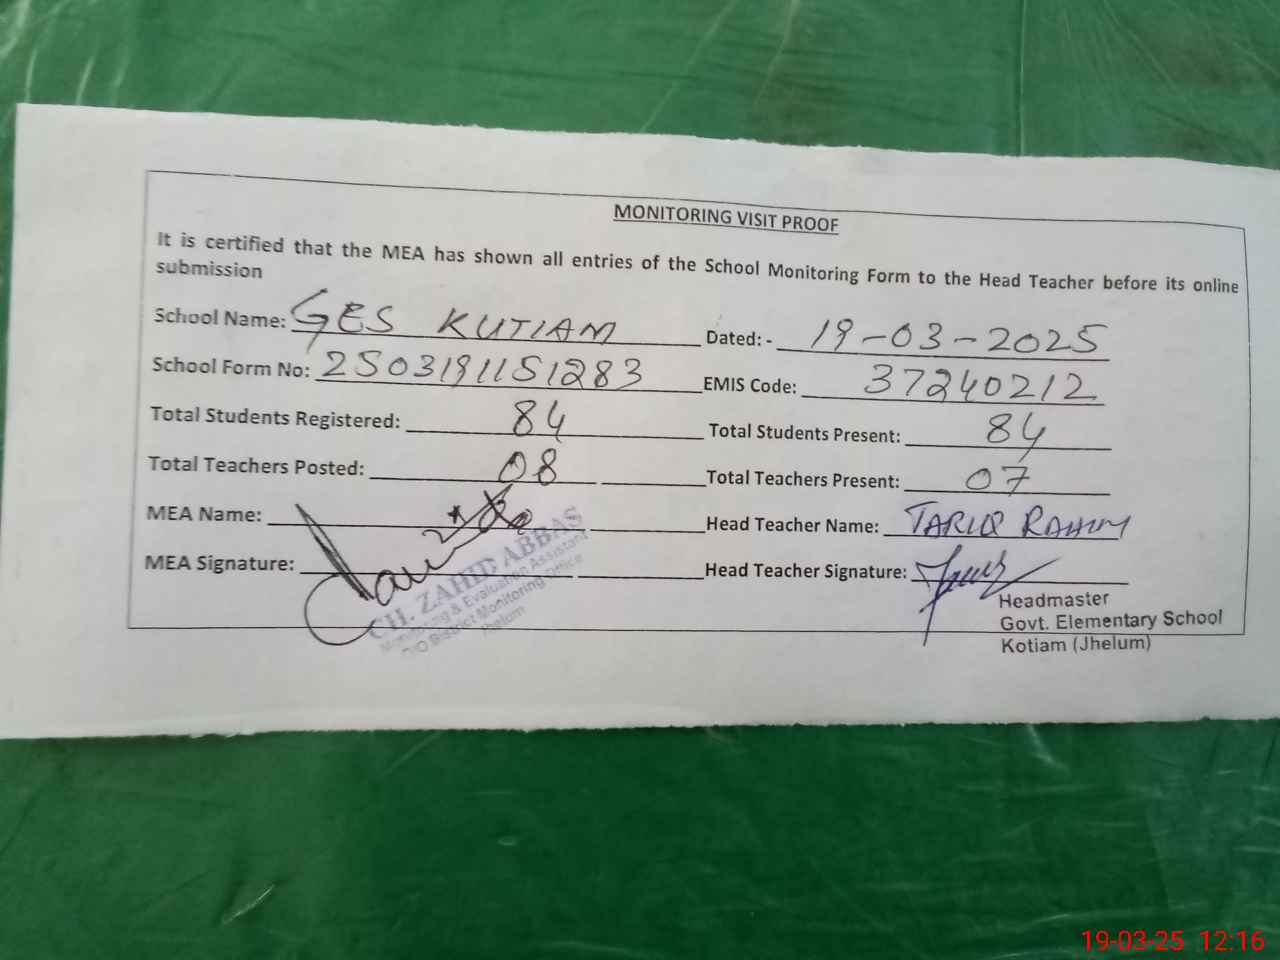 MONITORING VISIT PROOF
It is certified that the MEA has shown all entries of the School Monitoring Form to the Head Teacher before its online
submission
School Name: GES KUTIAM Dated: - 19-03-2025
School Form No: 2503191151283 EMIS Code: 37240212
Total Students Registered: 84 Total Students Present: 84
Total Teachers Posted: 08 Total Teachers Present: 07
MEA Name: Head Teacher Name: TARIQ RAHIM
MEA Signature: Head Teacher Signature:
CH. ZAHID ABBAS
Monitoring & Evaluation Assistant
O/O District Monitoring Office
Jhelum
Headmaster
Govt. Elementary School
Kotiam (Jhelum)
19-03-25 12:16